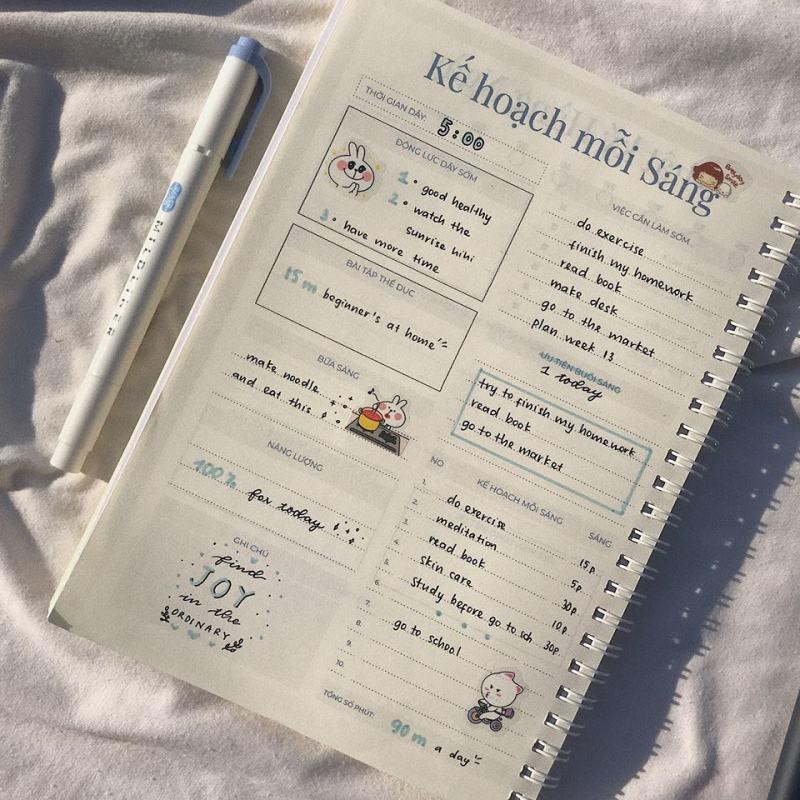 Kế hoạch mỗi Sáng
THỜI GIAN DẬY:
5:00
ĐỘNG LỰC DẬY SỚM
1. good healthy
2. watch the
sunrise hihi
3. have more time
BÀI TẬP THỂ DỤC
15 m beginner's at home
BỮA SÁNG
make noodle
and eat this
NĂNG LƯỢNG
100% for today
GHI CHÚ
find
JOY
in the
ORDINARY
VIỆC CẦN LÀM SỚM
do exercise
finish my homework
read book
make desk
go to the market
plan week 13
ƯU TIÊN BUỔI SÁNG
1 today
try to finish my homework
read book
go to the market
NO KẾ HOẠCH MỖI SÁNG SÁNG
1. do exercise 15p
2. meditation 5p
3. read book 30p
4. skin care 10p
5. study before go to sch 30p
6.
7. go to school
8.
9.
10.
TỔNG SỐ PHÚT: 90 m a day
MILDLINER